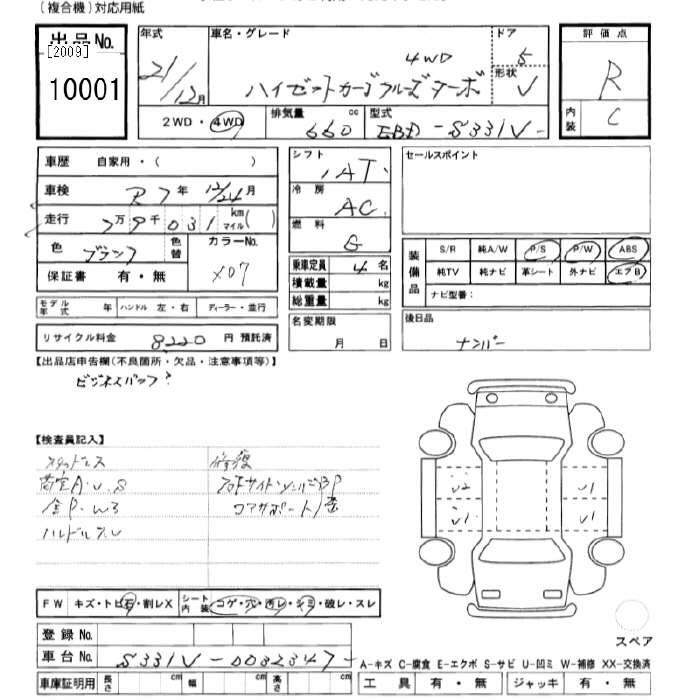 (複合機)対応用紙
出品No.
[2009]
10001
年式
21/12月
車名・グレード
4WD
ハイゼットカーゴクルーズターボ
ドア
5
形状
V
評価点
R
内装
C
2WD・4WD
排気量
660 cc
型式
EBD-S331V-
車歴 自家用・( )
車検 R7年 12/24月
走行 7万9千031 km マイル( )
色
ブラック
色替
カラーNo.
X07
保証書 有・無
モデル年式 年
ハンドル 左・右
ディーラー・並行
リサイクル料金 8220 円 預託済
シフト
IAT
冷房
AC
燃料
G
乗車定員 4名
積載量 kg
総重量 kg
名変期限
月 日
セールスポイント
装備品
S/R 純A/W P/S P/W ABS
純TV 純ナビ 革シート 外ナビ エアB
ナビ型番:
後日品
ナンバー
【出品店申告欄(不良箇所・欠品・注意事項等)】
ビジネスパック?
【検査員記入】
スタッドレス
荷室A・U・S
全P・W3
ハンドルスレ
修復
コアサポート
U2
U1
U1
U1
FW キズ・トビ石・割レX
シート内装 コゲ・穴・汚レ・シミ・破レ・スレ
登録No.
車台No. S331V-0032347-
車庫証明用 長さ cm 幅 cm 高さ cm
スペア
A-キズ C-腐食 E-エクボ S-サビ U-凹ミ W-補修 XX-交換済
工具 有・無 ジャッキ 有・無